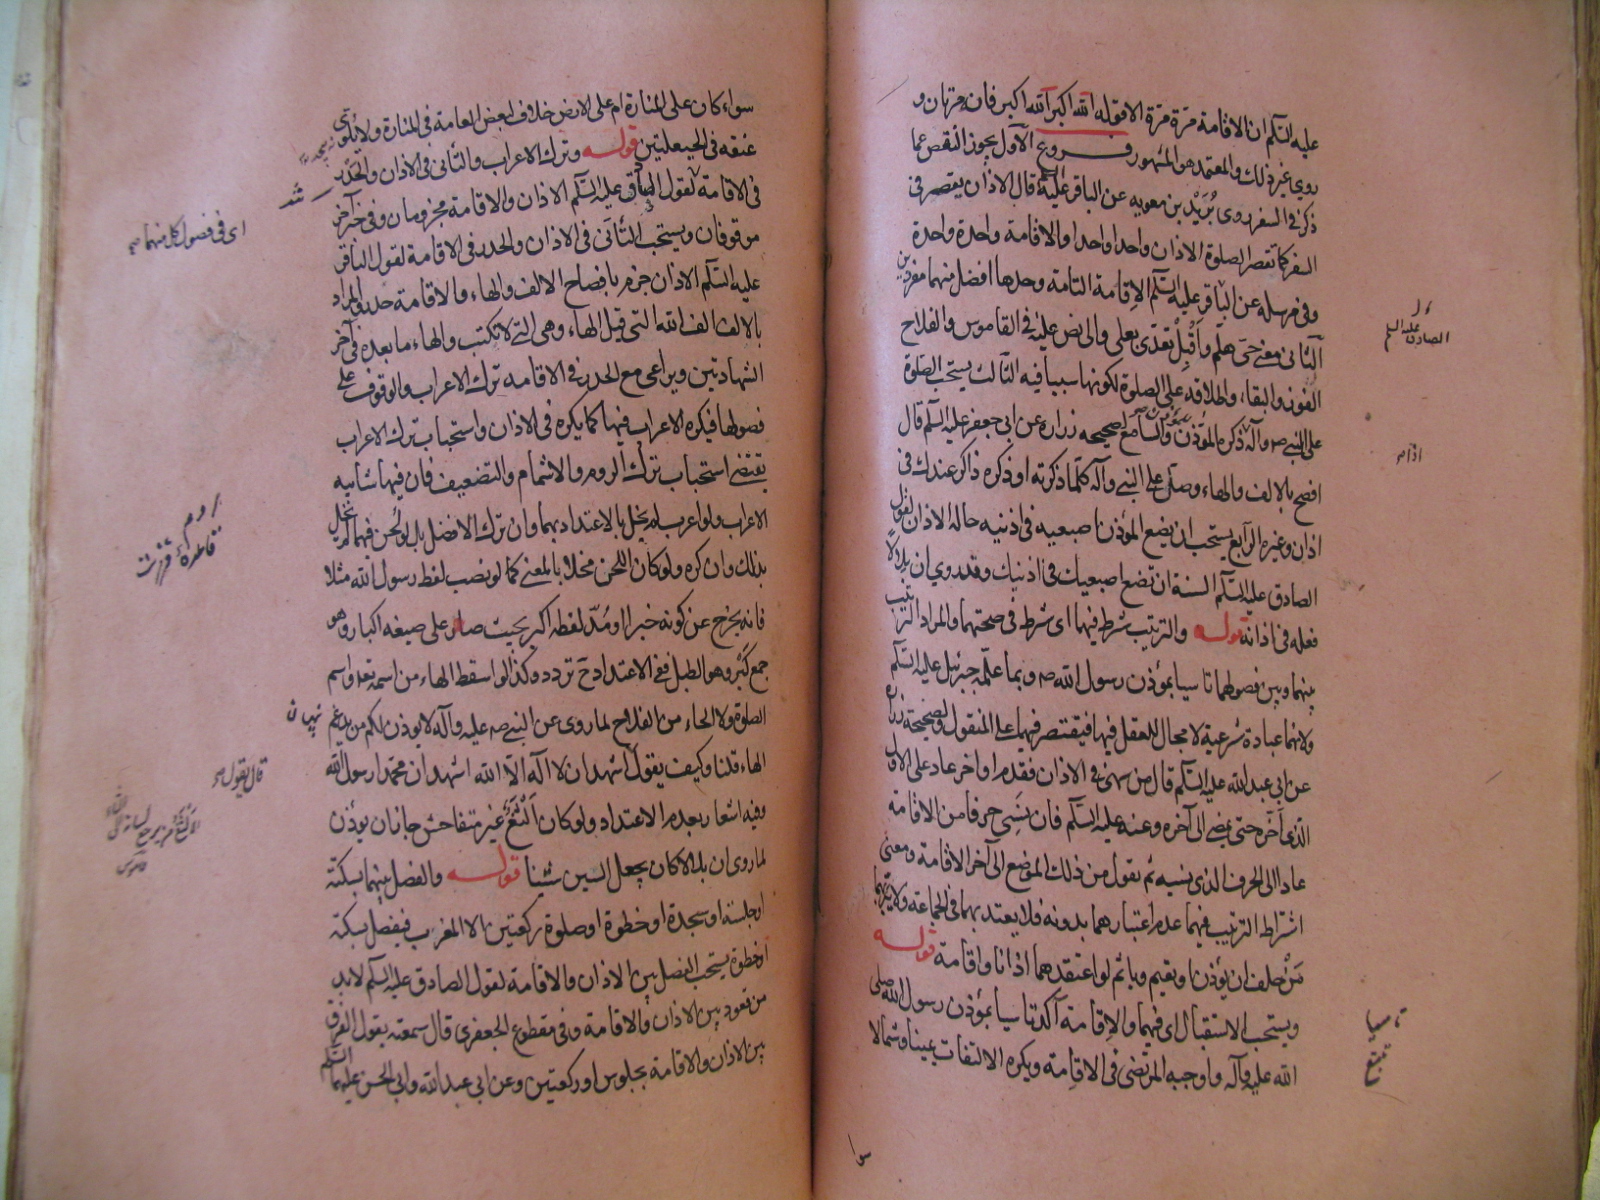 عليه السلم ان الاقامة مرة مرة الا قوله الله اكبر الله اكبر فانه مرتان و
روي غير ذلك والمعتمد هو المشهور فروع الاول يجوز النقص عما
ذكر في السفر روى بُرَيْد بن معويه عن الباقر عليه السلم قال الاذان يقصر في
السفر كما تقصر الصلوة الاذان واحدا واحدا والاقامة واحدة واحدة
وفي مرسله عن الباقر عليه السلم الاقامة التامة وحدها افضل منهما مفردين
الثاني معنى حيّ هلم واَقْبِلْ تعدّى بعلى والى نص عليه في القاموس والفلاح
الفوز والبقاء واطلاقه على الصلوة لكونها سببا فيه الثالث يستحب الصلوة
على النبي صه وآله ذكره المؤذن والسامع لصحيحه زراره عن ابي جعفر عليه السلم قال
افصح بالالف والهاء وصلّ على النبي وآله كلما ذكرته او ذكره ذاكر عندك في
اذان وغيره الرابع يستحب ان يضع المؤذن اصبعيه في اذنيه حالة الاذان لقول
الصادق عليه السلم السنة ان تضع اصبعيك في اذنيك وقد روي ان بلالا
فعله في اذانه قوله والترتيب شرط فيهما اي شرط في صحتهما والمراد الترتيب
بينهما وبين فصولهما تاسيا بمؤذن رسول الله صه وبما علمه جبرئيل عليه السلم
ولانهما عبادة شرعية لا مجال للعقل فيها فيقتصر فيهما على المنقول ولصحيحة زراره
عن ابي عبد الله عليه السلم قال من سهى في الاذان فقدم او اخر عاد على الاول
الذي اخّره حتى يمضي الى آخره وعنه عليه السلم فان نسي حرفا من الاقامة
عاد الى الحرف الذي نسيه ثم يقول من ذلك الموضع الى آخر الاقامة ومعنى
اشتراط الترتيب فيهما عدم اعتبارهما بدونه فلا يعتد بهما في الجماعة ولا يبرّ بهما
مَنْ حلف ان يؤذن ويقيم ويأثم لو اعتقدهما اذانا واقامة قوله
ويستحب الاستقبال اي فيهما والاقامة آكد تاسيا بمؤذن رسول الله صلى
الله عليه وآله واوجبه المرتضى في الاقامة ويكره الالتفات يمينا وشمالا
الصادق عليه السلم
اذا صه
تاسيا
سوا
سواء كان على المنارة ام على الارض خلاف لبعض العامة في المنارة ولا يلوى
عنقه في الحيعلتين قوله وترك الاعراب والتانى في الاذان والحدر
في الاقامة لقول الباقر عليه السلم الاذان والاقامة مجزومان وفي خبر آخر
موقوفان ويستحب التأنى في الاذان والحدر في الاقامة لقول الباقر
عليه السلم الاذان جزم بافصاح الالف والهاء والاقامة حدر والمراد
بالالف الف الله التي قبل الهاء وهي التي لا تكتب والهاء ما بعده في آخر
الشهادتين ويراعى مع الحدر في الاقامه ترك الاعراب والوقوف على
فصولها فيكره الاعراب فيها كما يكره في الاذان واستحباب ترك الاعراب
يقتضي استحباب ترك الروم والاشمام والتضعيف فان فيها شايبه
الاعراب ولو اعرب لم يخل بالاعتداد بهما وان ترك الافضل بل لو لحن فيهما لم يخل
بذلك وان كره ولو كان اللحن مخلا بالمعنى كما لو نصب لفظ رسول الله مثلا
فانه يخرج عن كونه خبرا او مُدّ لفظه اكبر بحيث صار على صيغه اكبار وهو
جمع كَبَر وهو الطبل ففي الاعتداد ح تردد وكذا لو اسقط الهاء من اسمه تعه واسم
الصلوة ولا الحاء من الفلاح لما روى عن النبي صه عليه وآله لا يوذن لكم من يدغم
الهاء قلنا وكيف يقول اشهد ان لا اله الا الله اشهد ان محمدا رسول الله
وفيه اشعار بعدم الاعتداد ولو كان الثغ غير متفاحش جاز ان يؤذن
لما روي ان بلالا كان يجعل السين شينا قوله والفصل بينهما بسكتة
او جلسة او سجدة او خطوة او صلوة ركعتين الا المغرب فيفصل بسكتة
او خطوة يستحب الفصل بين الاذان والاقامة لقول الصادق عليه السلم لابد
من قعود بين الاذان والاقامة وفي مقطوع الجعفري قال سمعته يقول الفرق
بين الاذان والاقامة بجلوس او ركعتين وعن ابي عبد الله وابي الحسن عليهما السلم
اي في فصول كل منهما صه
قال يقول صه